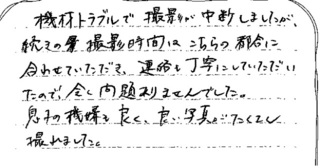 機材トラブルで撮影が中断しましたが、
続きの撮影時間はこちらの都合に
合わせていただき、連絡も丁寧にしていただい
たので、全く問題ありませんでした。
息子の機嫌も良く、良い写真がたくさん
撮れました。